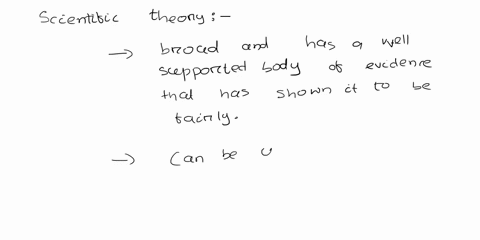 Scientific theory:-
→ broad and has a well
supported body of evidence
that has shown it to be
fairly.
→ Can be u